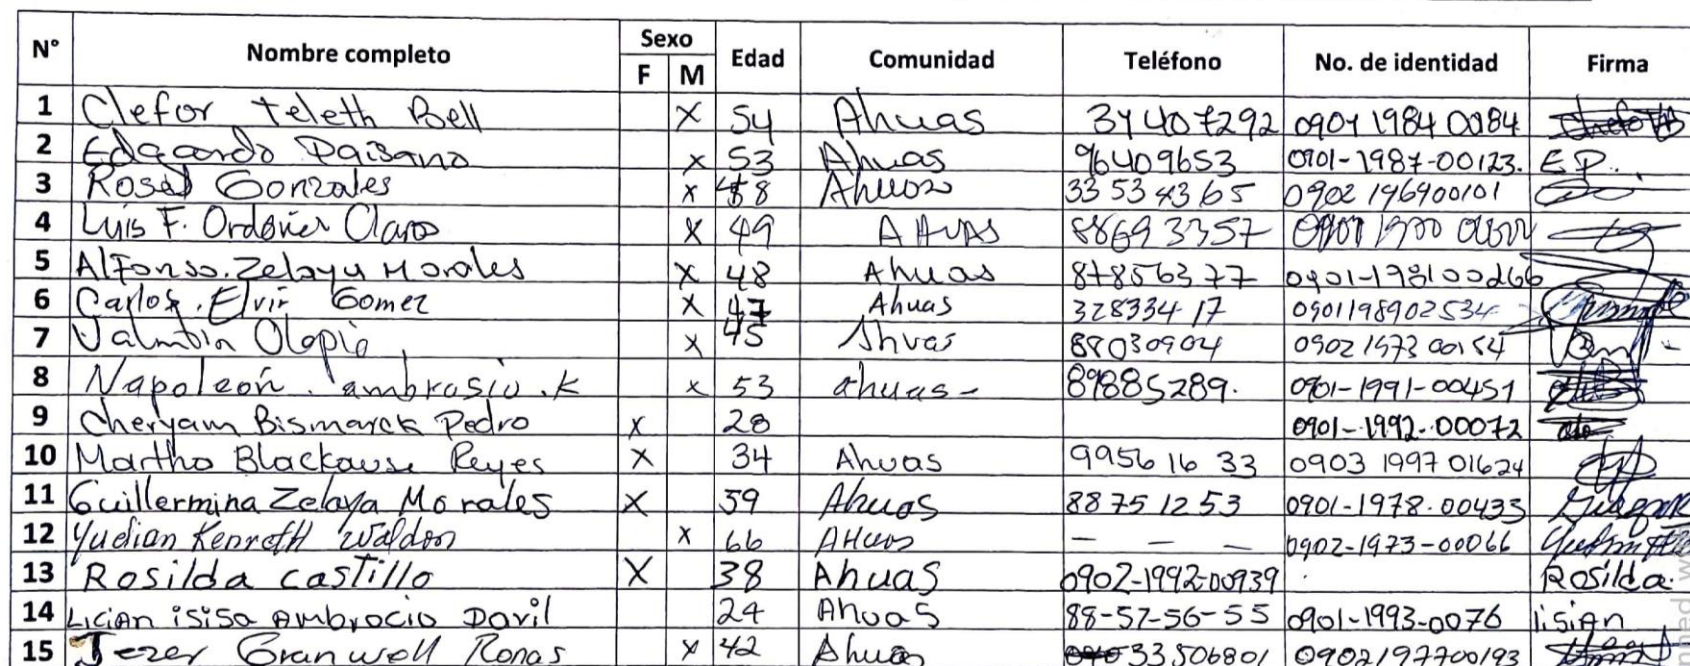 N° Nombre completo Sexo F M Edad Comunidad Teléfono No. de identidad Firma
1 Clefor teleth Bell X 54 Ahuas 31407292 0901 1984 0084
2 Edgardo Paisano X 53 Ahuas 96409653 0901-1987-00123. E.P.
3 Rosal Gonzales X 58 Ahuas 33534365 0902 196900101
4 Luis F. Ordoñes Claros X 49 AHUAS 88693357
5 Alfonso. Zelaya Morales X 48 Ahuas 87856377 0901-198100266
6 Carlos. Elvir Gomez X 47 Ahuas 32833417 0901198902534
7 Olopio X 45 Ahuas 88030904 0902 1973 00154
8 Napoleón. ambrosio. K X 53 ahuas- 89885289. 0901-1991-00451
9 Cheryam Bismarck Pedro X 28 0901-1992-00072
10 Martha Blackause Reyes X 34 Ahuas 9956 16 33 0903 1997 01624
11 Guillermina Zelaya Morales X 39 Ahuas 88 75 12 53 0901-1978-00433
12 Yudian Kenreth Waldon X 66 AHuas - - - 0902-1973-00066
13 Rosilda castillo X 38 Ahuas 0902-1992-00939 Rosilda.
14 Lician isisa Ambrocio Davil 24 Ahuas 88-57-56-55 0901-1993-0076 lisian
15 Jezer Granwell Ronas X 42 Ahuas 33506801 0902197700193